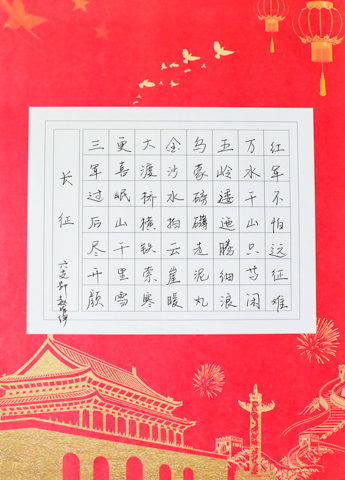 红军不怕远征难
万水千山只等闲
五岭逶迤腾细浪
乌蒙磅礴走泥丸
金沙水拍云崖暖
大渡桥横铁索寒
更喜岷山千里雪
三军过后尽开颜
长征
六支部